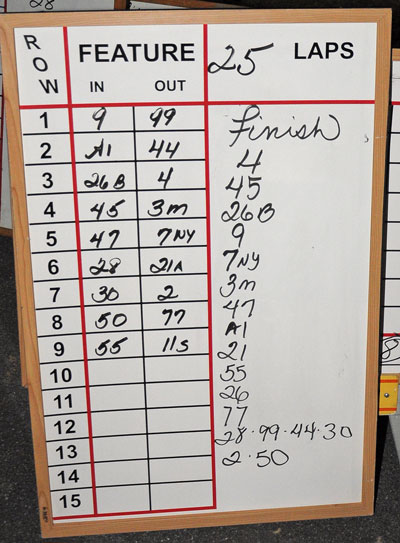 ROW FEATURE 25 LAPS
IN OUT
1 9 99 Finish
2 A1 44 4
3 26B 4 45
4 45 3m 26B
5 47 7NY 9
6 28 21A 7NY
7 30 2 3m
8 50 77 47
9 55 11s A1
10 21
11 55
12 26
13 77
14 28·99·44·30
15 2·50
28
8